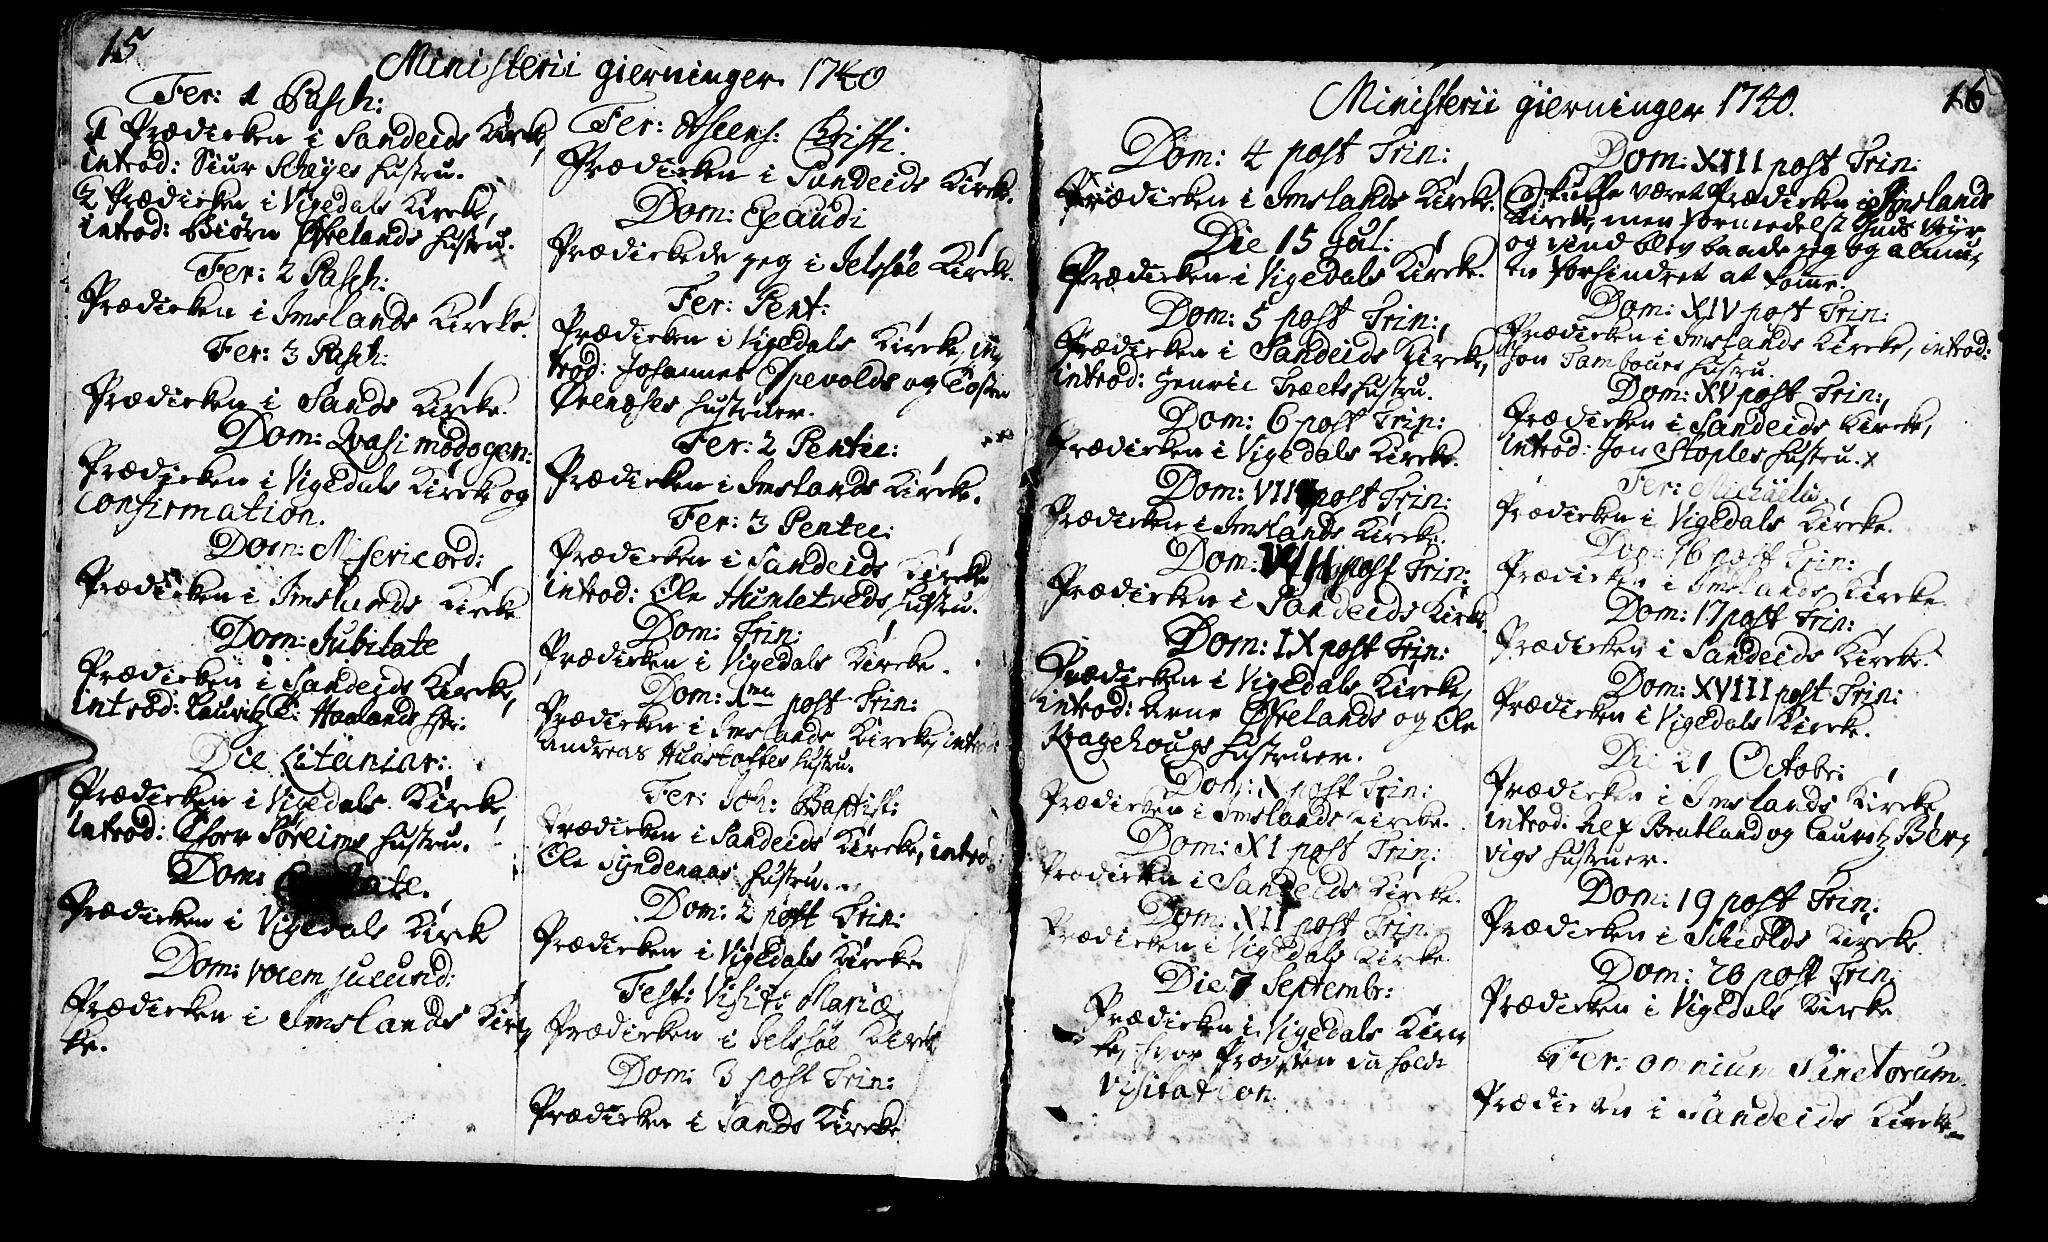 15
Ministerii gierninger 1740
Fer: 1 Pasch:
1 Prædicken i Sandeids Kirke,
introd: Siur Schejes Hustru.
2 Prædicken i Vigedals Kircke,
introd: Biørn Øfrelands Hustru.
Fer: 2 Pasch:
Prædicken i Imslands Kircke.
Fer: 3 Pasch:
Prædicken i Sands Kircke.
Dom: Qvasimodogen:
Prædicken i Vigedals Kircke og
Confirmation.
Dom: Misericord:
Prædicken i Imslands Kircke
Dom: Jubilate
Prædicken i Sandeids Kircke,
introd: Lauritz Haalands Hstr:
Die Litaniar:
Prædicken i Vigedals Kircke,
introd: Thorr Søreims Hustru.
Dom:
Prædicken i Vigedals Kirck
Dom: vocem jucund:
Prædicken i Imslands Kirc
ke.
Fer: Ascens: Christi.
Prædicken i Sandeids Kircke.
Dom: Exaudi
Prædickede jeg i Jelssøe Kircke.
Fer: Pent:
Prædicken i Vigedals Kircke, in,
trod: Johannes Espevolds og Tosten
Øvenøses Hustruer.
Fer: 2 Pentec:
Prædicken i Imslands Kircke.
Fer: 3 Pentec:
Prædicken i Sandeids Kircke
introd: Ole Hunletveds Hustru.
Dom: Trin:
Prædicken i Vigedals Kircke.
Dom: 1ma post Trin:
Prædicken i Imslands Kircke, introd:
Andreas Hustru.
Fer: Joh: Baptist:
Prædicken i Sandeids Kircke, intro
Ole Tyndenaas Hustru.
Dom: 2 post Trin:
Prædicken i Vigedals Kircke
Fest: Visit: Mariæ
Prædicken i Jelssøe Kirck
Dom: 3 post Trin:
Prædicken i Sands Kircke
16
Ministerii gierninger 1740.
Dom: 4 post Trin:
Prædicken i Imslands Kircke.
Die 15 Jul:
Prædicken i Vigedals Kircke.
Dom: 5 post Trin:
Prædicken i Sandeids Kircke,
introd: Henric Træets Hustru.
Dom: 6 post Trin:
Prædicken i Vigedals Kircke.
Dom: VII post Trin:
Prædicken i Imslands Kircke.
Dom: VIII post Trin:
Prædicken i Sandeids Kirke.
Dom: IX post Trin:
Prædicken i Vigedals Kircke,
introd: Arne Øfrelands og Ole
Kragehougs Hustruer.
Dom: X post Trin:
Prædicken i Imslands Kircke.
Dom: XI post Trin:
Prædicken i Sandeids Kircke.
Dom: XII post Trin:
Prædicken i Vigedals Kircke.
Die 7 Septembr:
Prædicken i Vigedals Kirc
ke, hvor Provsten da holdt
visitation.
Dom: XIII post Trin:
Skulle været Prædicken i Imslands
Kircke, men formedelst Guds Veyr
og vind blev baade jeg og almu,
en forhindret at komme.
Dom: XIV post Trin:
Prædicken i Imslands Kircke, introd:
Jon Tambours Hustru.
Dom: XV post Trin:
Prædicken i Sandeids Kircke,
introd: Jon Stoples Hustru.
Fer: Michaelis.
Prædicken i Vigedals Kircke.
Dom: 16 post Trin:
Prædicken i Imslands Kircke
Dom: 17 post Trin:
Prædicken i Sandeids Kircke.
Dom: XVIII post Trin:
Prædicken i Vigedals Kircke.
Die 21 Octobr:
Prædicken i Imslands Kircke,
introd: Bratland og Lauritz Ber,
vigs Hustruer.
Dom: 19 post Trin:
Prædicken i Schiolds Kircke.
Dom: 20 post Trin:
Prædicken i Vigedals Kircke
Fer: omnium Sanctorum
Prædicken i Sandeids Kircke.